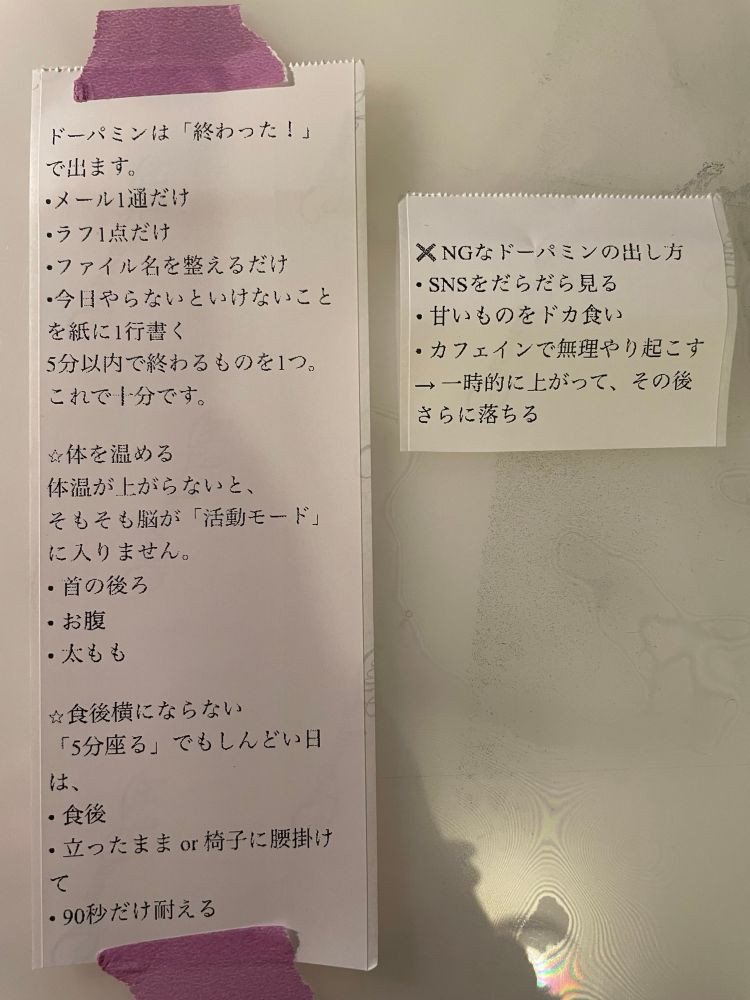 ドーパミンは「終わった！」
で出ます。
•メール1通だけ
•ラフ1点だけ
•ファイル名を整えるだけ
•今日やらないといけないこと
を紙に1行書く
5分以内で終わるものを1つ。
これで十分です。
☆体を温める
体温が上がらないと、
そもそも脳が「活動モード」
に入りません。
• 首の後ろ
• お腹
• 太もも
☆食後横にならない
「5分座る」でもしんどい日
は、
• 食後
• 立ったまま or 椅子に腰掛け
て
• 90秒だけ耐える
❌ NGなドーパミンの出し方
• SNSをだらだら見る
• 甘いものをドカ食い
• カフェインで無理やり起こす
→ 一時的に上がって、その後
さらに落ちる